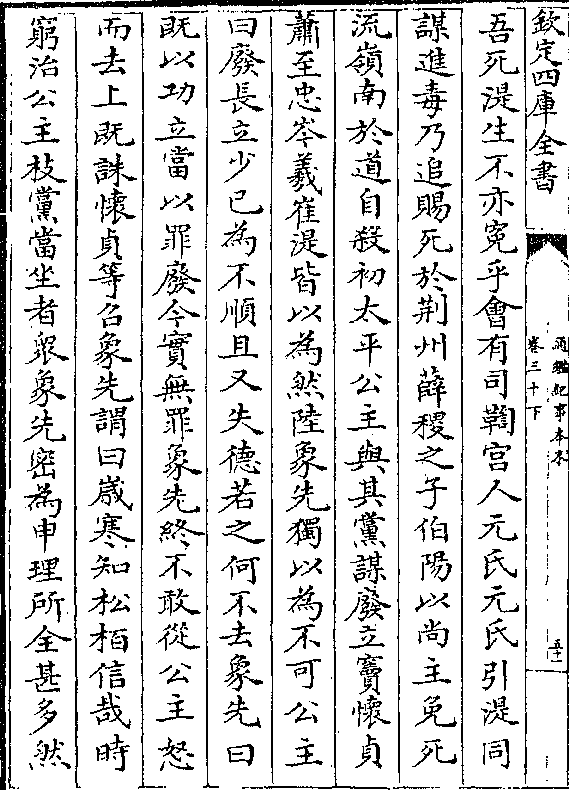 欽定四庫全書
通鑑紀事本末
卷三十下
五十一
吾死湜生不亦寃乎會有司鞫宫人元氏元氏引湜同
謀進毒乃追賜死於荆州薛稷之子伯陽以尚主免死
流嶺南於道自殺初太平公主與其黨謀廢立竇懷貞
蕭至忠岑羲崔湜皆以為然陸象先獨以為不可公主
曰廢長立少已為不順且又失德若之何不去象先曰
既以功立當以罪廢今實無罪象先終不敢從公主怒
而去上既誅懷貞等召象先謂曰歲寒知松栢信哉時
窮治公主枝黨當坐者衆象先密為申理所全甚多然